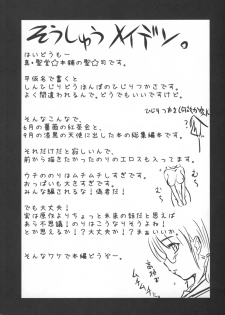 そうしゅうメイデン。
はいどうもー
真・聖堂☆本舗の聖☆司です。
平仮名で書くと
しんせいじどうほんぽのひじりつかさです。
よく間違われるんで、どうでもいいですけど。
そんなこんなで、
6月の薔薇の紅茶会と、
9月の漆黒の天使に出した本の総集編本です。
それだけだと寂しいんで、
前から描きたかったのりのエロスも入ってます。
ウチののりはムチムチしすぎです。
おっぱいも大きすぎです。
みんな騙されるな!偽者だ!
でも大丈夫!
実は原作よりちょっと未来の話だと思えば
あら不思議!のりはこうなりそうだよね!
とか思えるか!?大丈夫かー!?
そんなワケで本編どうぞー。